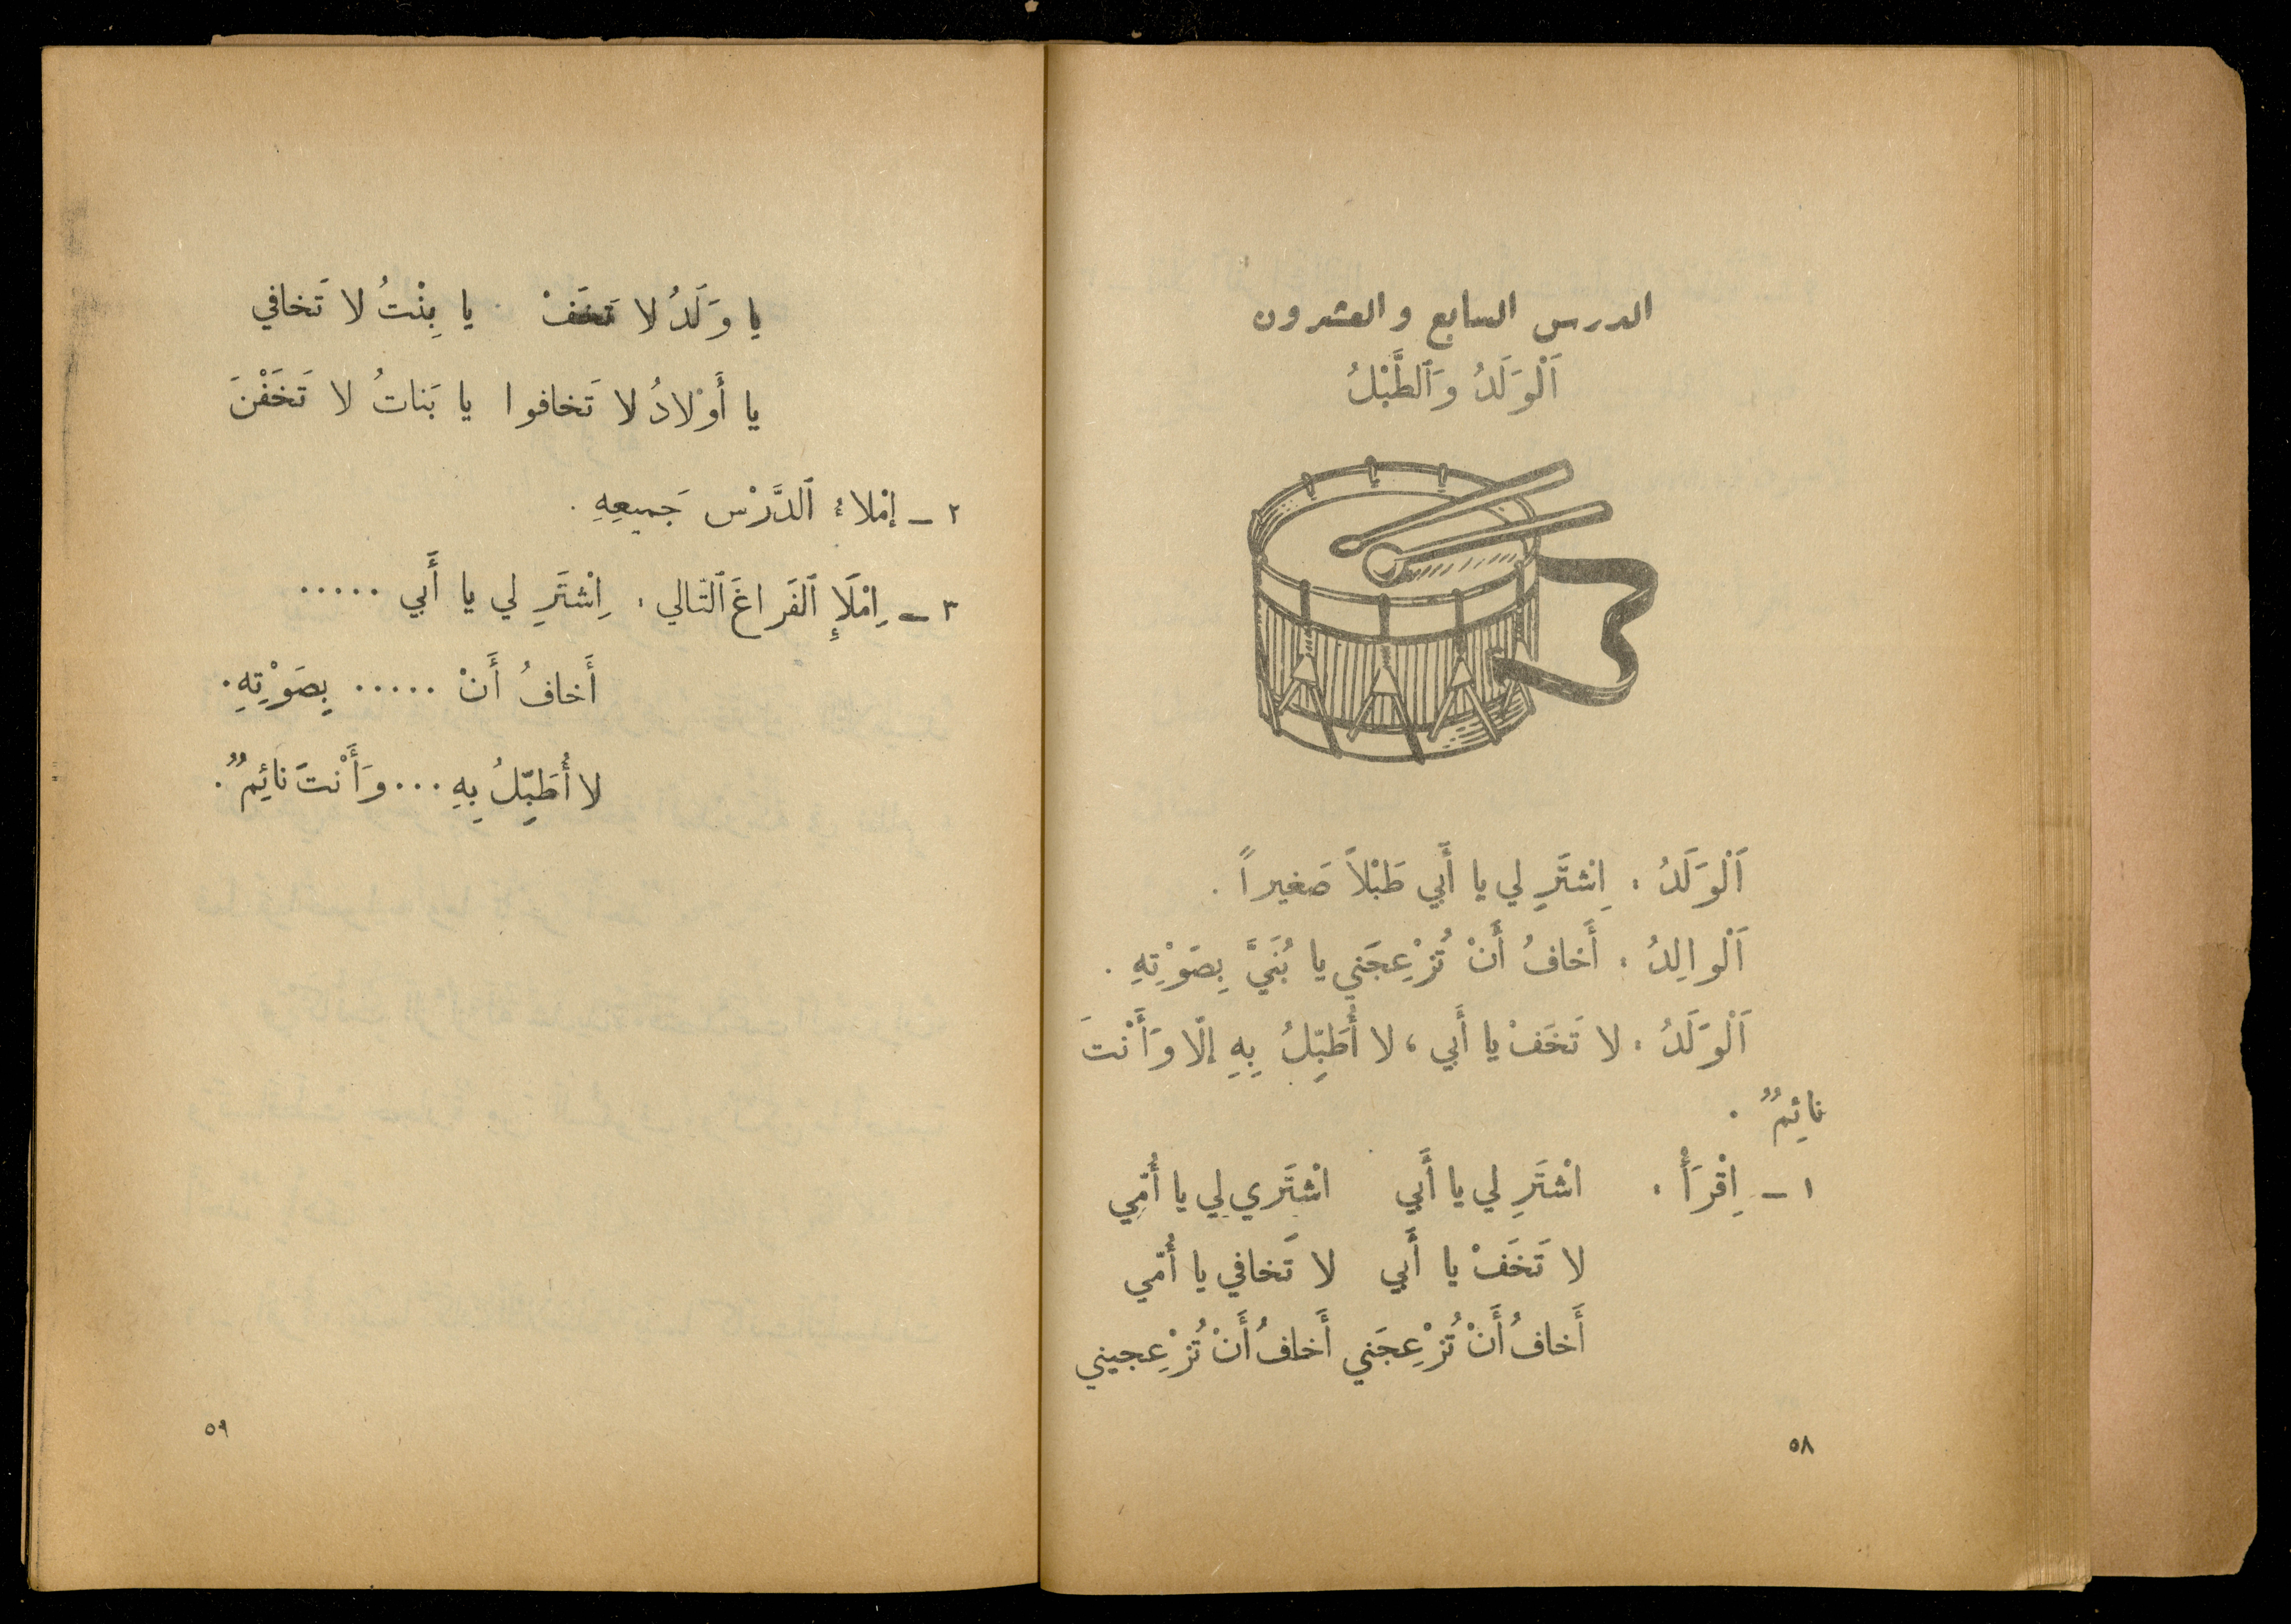 الدرس السابع والعشرون
اَلْوَلَدُ وَٱلطَّبْلُ
اَلْوَلَدُ : اِشْتَرِ لي يا أَبي طَبْلاً صَغيراً .
اَلْوالِدُ : أَخافُ أَنْ تُزْعِجَني يا بُنَيَّ بِصَوْتِهِ .
اَلْوَلَدُ : لا تَخَفْ يا أَبي ، لا أُطَبِّلُ بِهِ إلّا وَأَنْتَ
نائِمٌ .
١ - اِقْرَأْ : اشْتَرِ لي يا أَبي اشْتَري لِي يا أُمّي
لا تَخَفْ يا أَبي لا تَخافي يا أُمّي
أَخافُ أَنْ تُزْعِجَني أَخافُ أَنْ تُزْعِجيني
٥٨
يا وَلَدُ لا تَخَفْ يا بِنْتُ لا تَخافي
يا أَوْلادُ لا تَخافوا يا بَناتُ لا تَخَفْنَ
٢ - إمْلاءُ ٱلدَّرْس جَميعِهِ .
٣ - اِمْلَإِ ٱلفَراغَ ٱلتّالي : اِشْتَرِ لي يا أَبي .....
أَخافُ أَنْ ..... بِصَوْتِهِ .
لا أُطَبِّلُ بِهِ ... وَأَنْتَ نائِمٌ .
٥٩